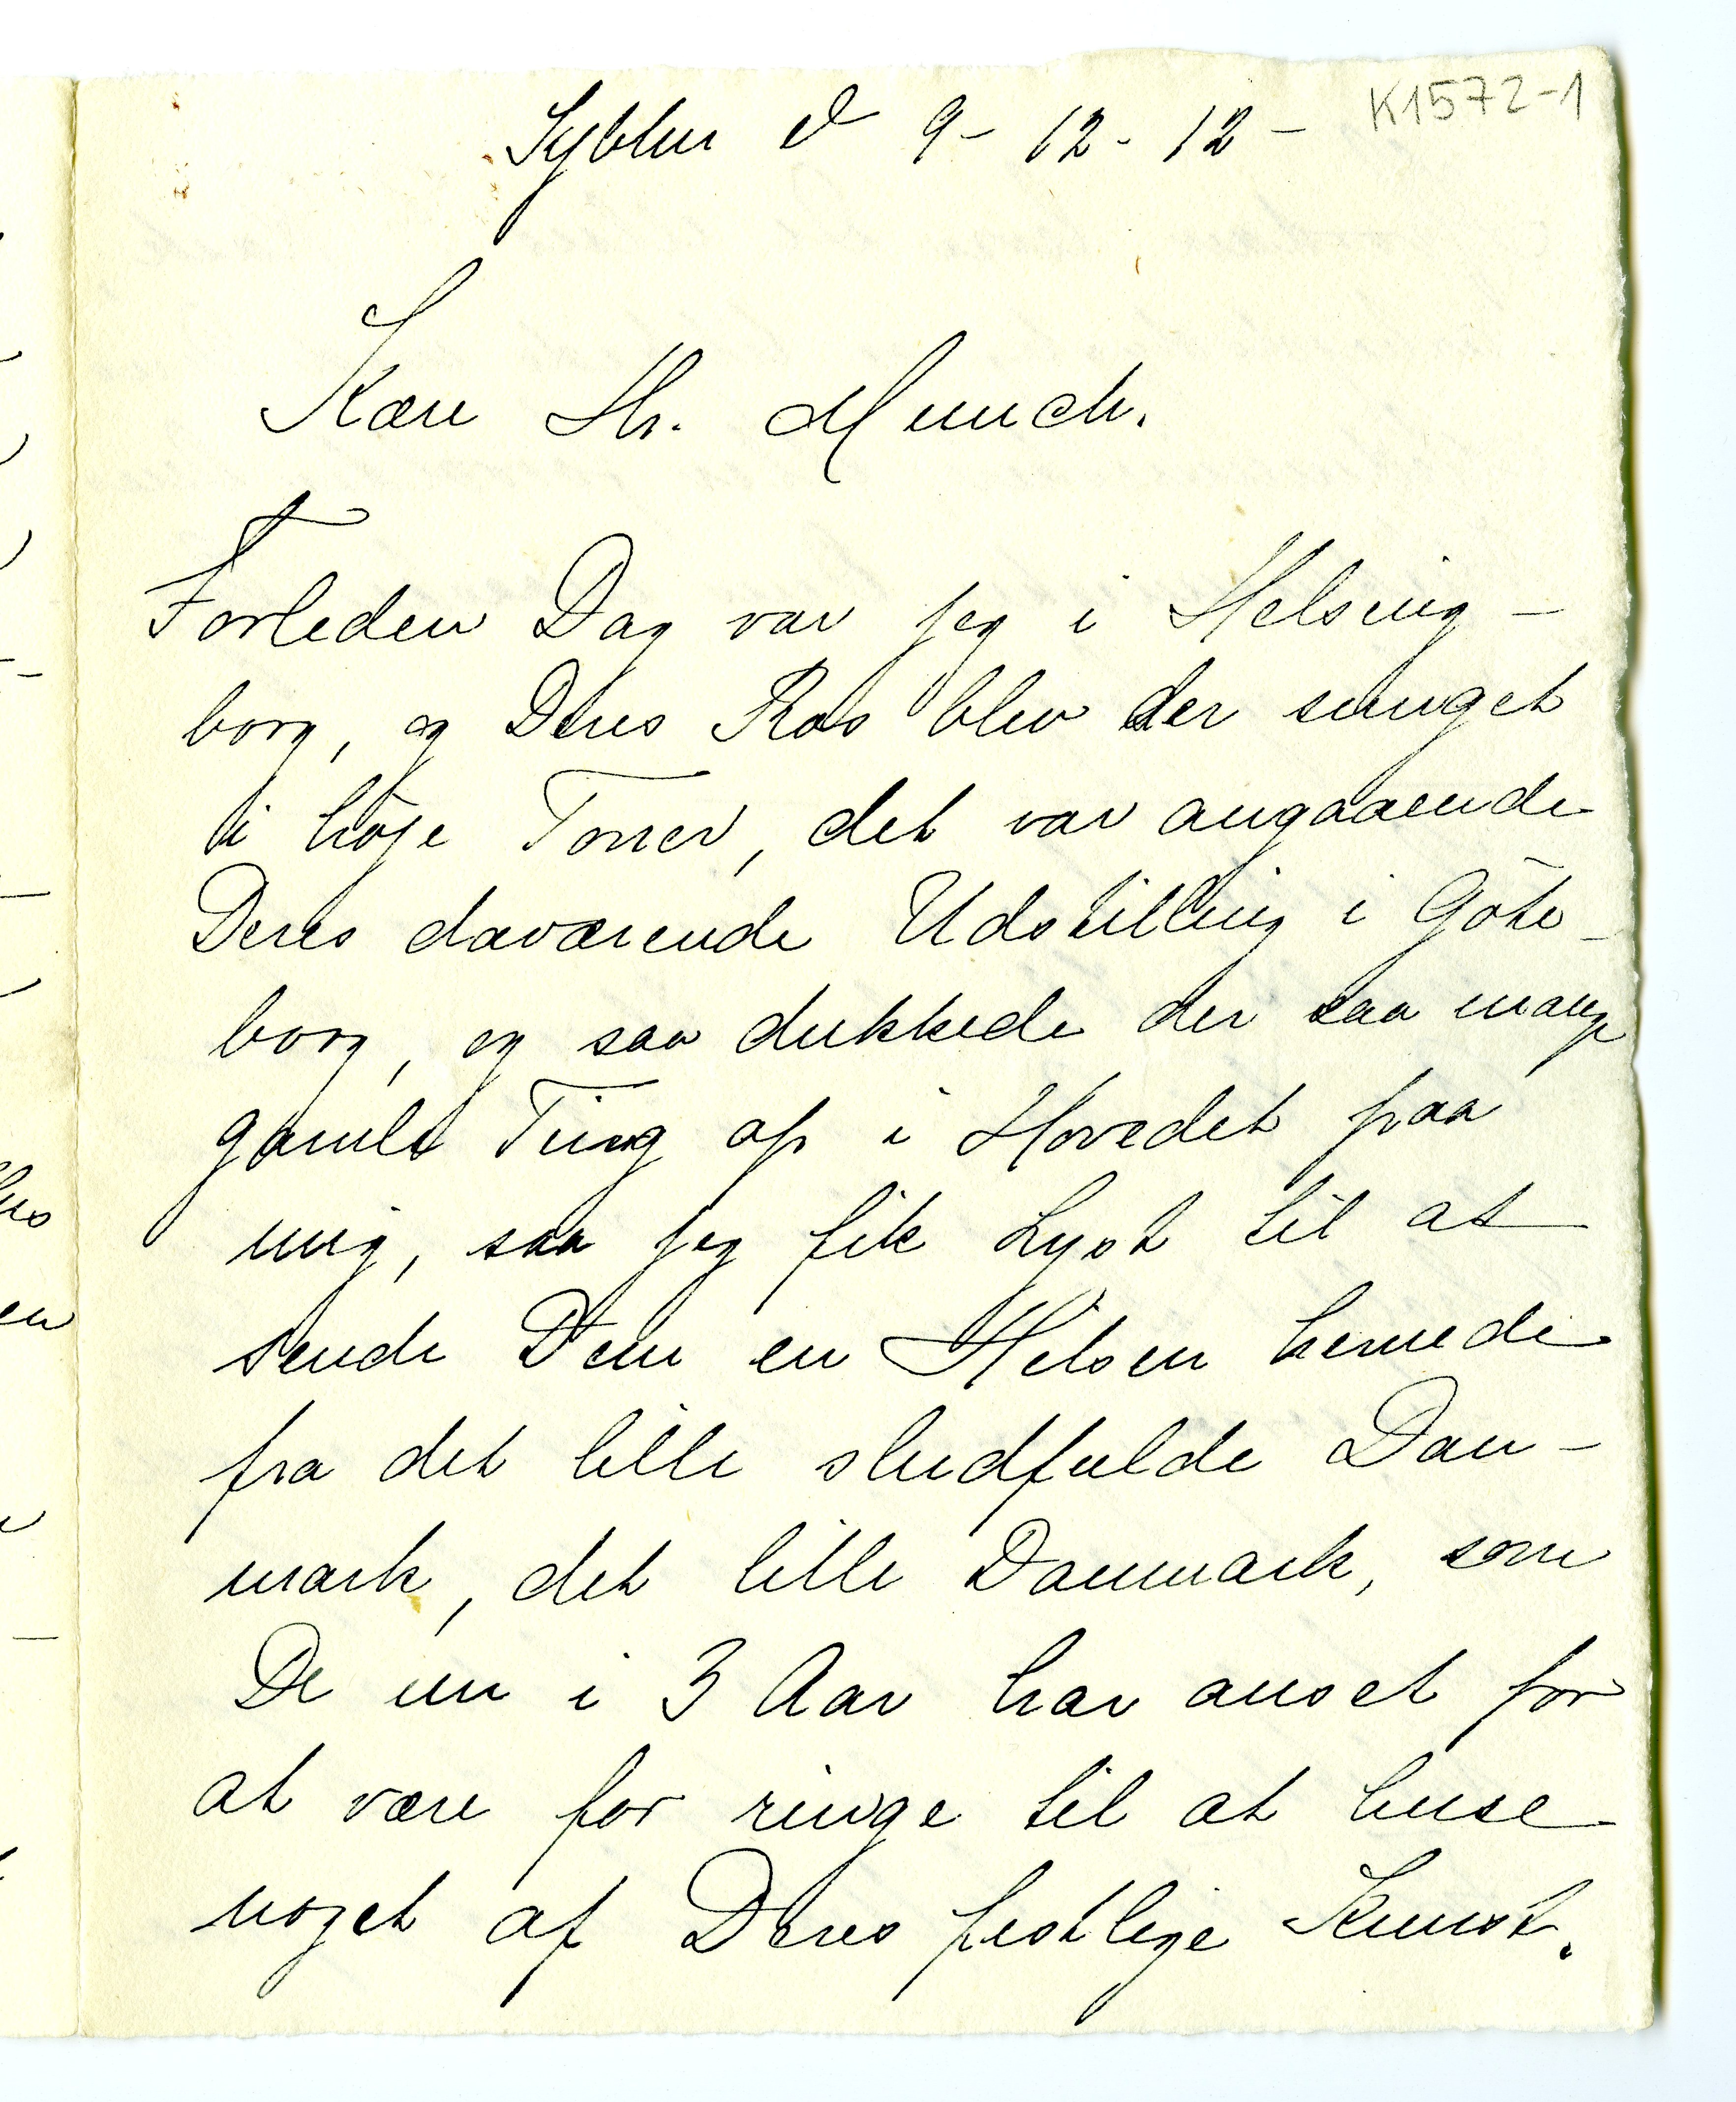 K1572-1
d 9- 12- 12-
Kære Hr. Munch.
Forleden Dag var jeg i Helsing-
borg, og Deres Ros blev der sunget
i høje Toner, det var angaaende
Deres daværende Udstilling i Göte-
borg, og saa dukkede der saa mange
gamle Ting op i Hovedet paa
mig, saa jeg fik Lyst til at
sende Dem en Hilsen hernede
fra det lille sludfulde Dan-
mark, det lille Danmark, som
De nu i 3 Aar har anset for
at være for ringe til at huse
noget af Deres festlige Kunst.